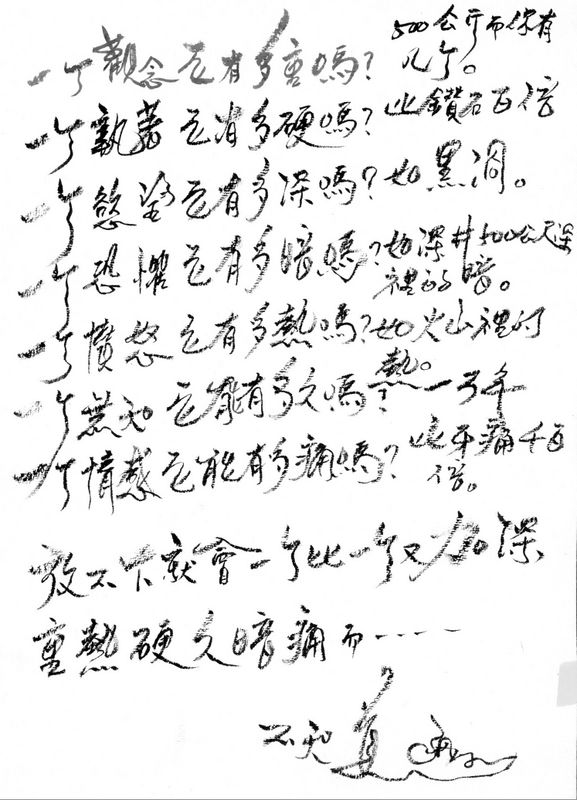 一个觀念它有多重嗎？500公斤而你有
几个。
一个執著它有多硬嗎？比鑽石百倍
一个慾望它有多深嗎？如黑洞。
一个恐懼它有多暗嗎？如深井500公尺深
裡的暗。
一个憤怒它有多熱嗎？如火山裡的
熱。
一个無知它能有多久嗎？一万年
一个情感它能有多痛嗎？比牙痛千百
倍。
放不下就會一个比一个又加深
重熱硬久暗痛而----
不知